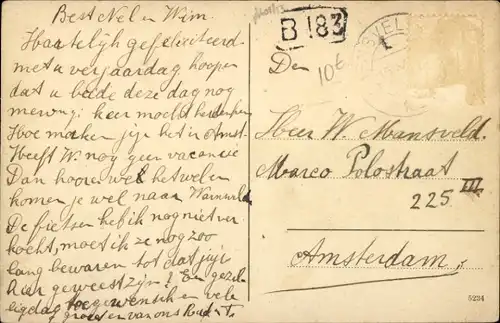 Best Nel en Wim.
Hartelijk gefeliciteerd
met u verjaardag, hoopen
dat u beide deze dag nog
menig keer mocht herdenken
Hoe maken jijje het in Amst.
Heeft W. nog geen vacancie
Dan hooren wel het wel en
komen je wel naar
De fietsen heb ik nog niet ver
kocht, moet ik ze nog zoo
lang bewaren tot dat jijje
hier geweest zijn? En gezel
ligdag toegewenschen vele
groeten van ons
B 183
10€
Den
Heer W. Mansveld.
Marco Polostraat
225 III
Amsterdam,
5224